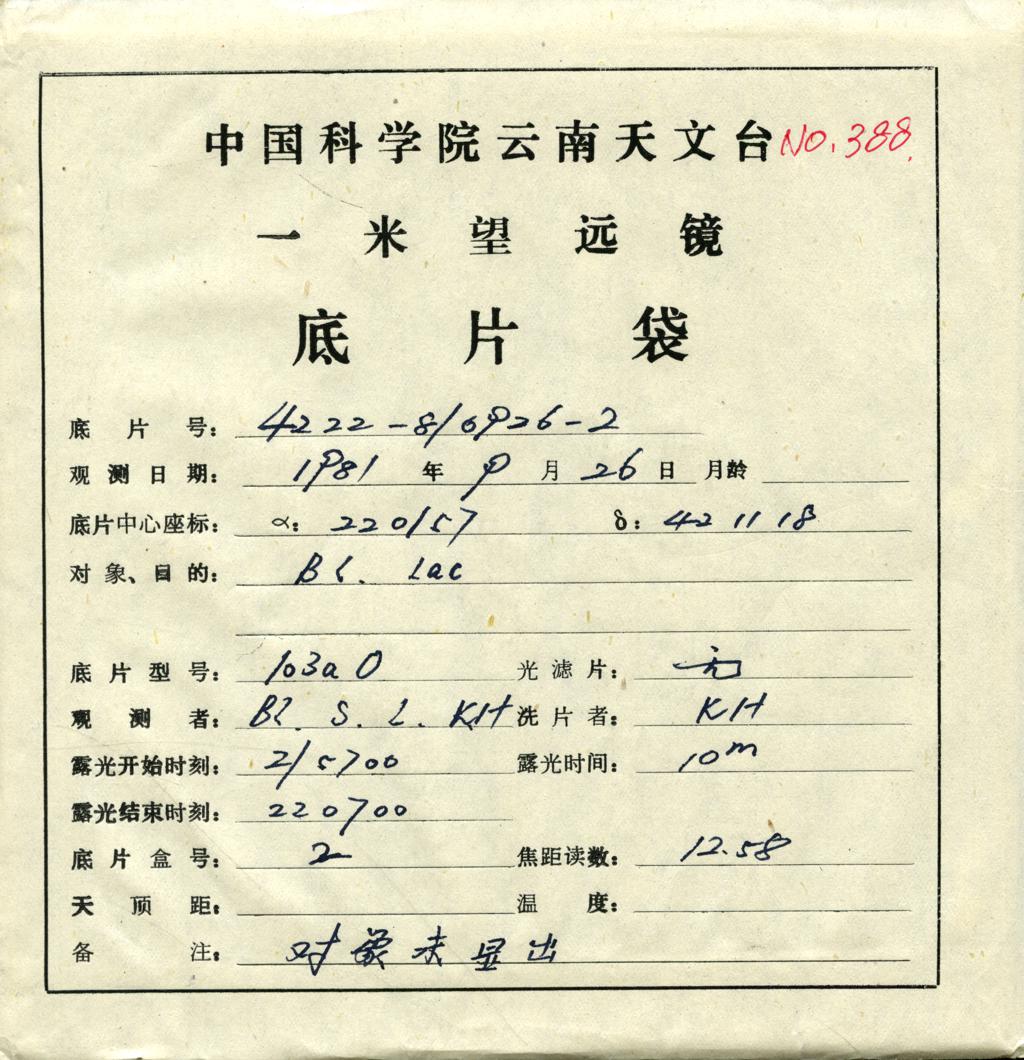 中国科学院云南天文台 NO.388
一米望远镜
底片袋
底片号: 4222-810926-2
观测日期: 1981年9月26日 月龄
底片中心座标: α: 220157 δ: 421118
对象、目的: BL. Lac
底片型号: 103aO 光滤片: 无
观测者: BL S. L. KH 洗片者: KH
露光开始时刻: 215700 露光时间: 10m
露光结束时刻: 220700
底片盒号: 2 焦距读数: 12.58
天顶距: 温度:
备注: 对象未显出